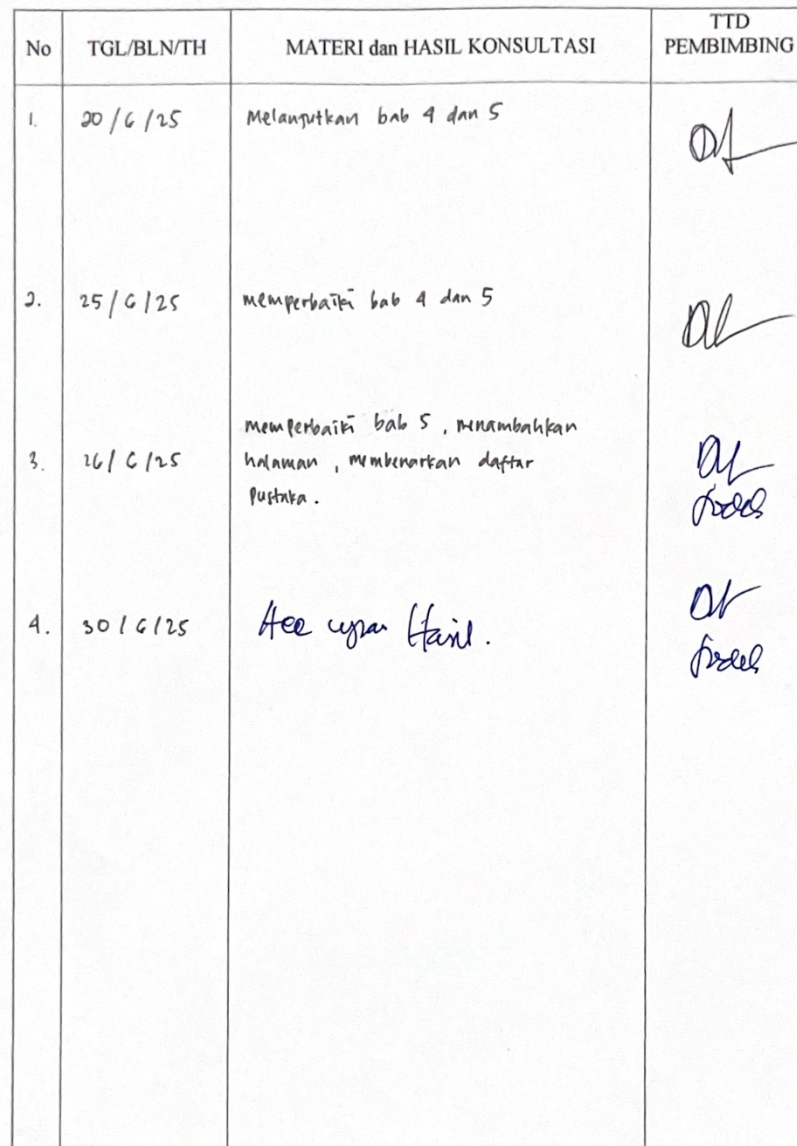 No TGL/BLN/TH MATERI dan HASIL KONSULTASI TTD PEMBIMBING
1. 20/6/25 Melanjutkan bab 4 dan 5
2. 25/6/25 memperbaiki bab 4 dan 5
3. 26/6/25 memperbaiki bab 5, menambahkan
halaman, membenarkan daftar
pustaka.
4. 30/6/25 Acc ujian Hasil.